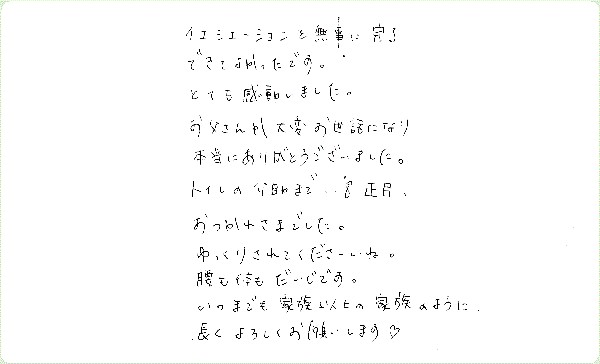 イニシエーションを無事に完了
できてよかったです。
とても感動しました。
お父さんが大変お世話になり
本当にありがとうございました。
トイレの介助まで…正月、
おつかれさまでした。
ゆっくりされてくださーいね。
腰も体もだいじです。
いつまでも家族以上の家族のように、
長くよろしくお願いします♡